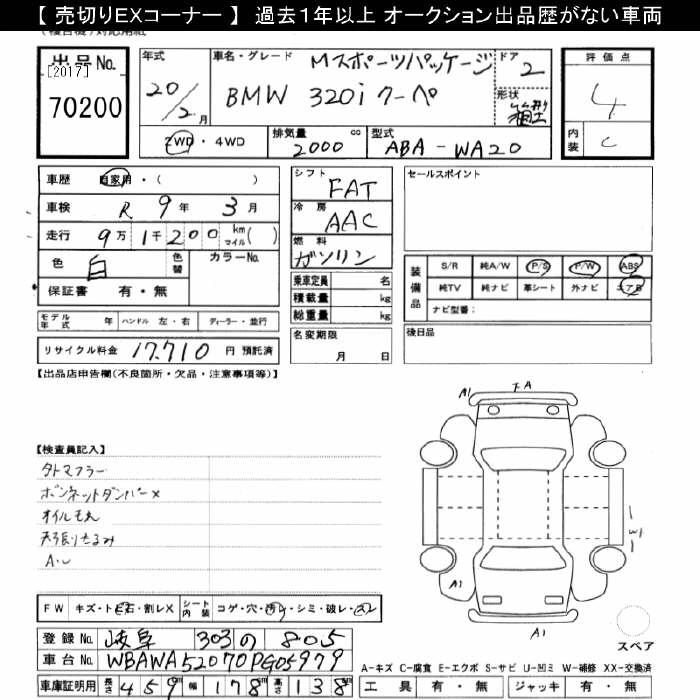 【 売切りEXコーナー 】 過去１年以上 オークション出品歴がない車両
出品No.
[2017]
70200
年式
20/2月
車名・グレード Mスポーツパッケージ
BMW 320i クーペ
ドア 2
形状 箱型
評価点
4
内装 C
2WD・4WD
排気量 2000 cc
型式 ABA-WA20
車歴 自家用・( )
車検 R 9年 3月
走行 9万1千200 km マイル( )
色 白 色替 カラーNo.
保証書 有・無
シフト FAT
冷房 AAC
燃料 ガソリン
乗車定員 名
積載量 kg
総重量 kg
名変期限
月 日
セールスポイント
装備品
S/R 純A/W P/S P/W ABS
純TV 純ナビ 革シート 外ナビ エアB
ナビ型番：
後日品
モデル年式 年 ハンドル 左・右 ディーラー・並行
リサイクル料金 17,710 円 預託済
【出品店申告欄(不良箇所・欠品・注意事項等)】
【検査員記入】
タトマフラー
ボンネットダンパー×
オイルモレ
天張りたるみ
A・U
A1 下A
W1
A1
A1
スペア
FW キズ・トビ石・割レX シート内装 コゲ・穴・汚レ・シミ・破レ・スレ
登録No. 岐阜 303 の 805
車台No. WBAWA52070PG05979
車庫証明用 長さ 459 幅 178 高さ 138
A-キズ C-腐食 E-エクボ S-サビ U-凹ミ W-補修 XX-交換済
工具 有・無 ジャッキ 有・無